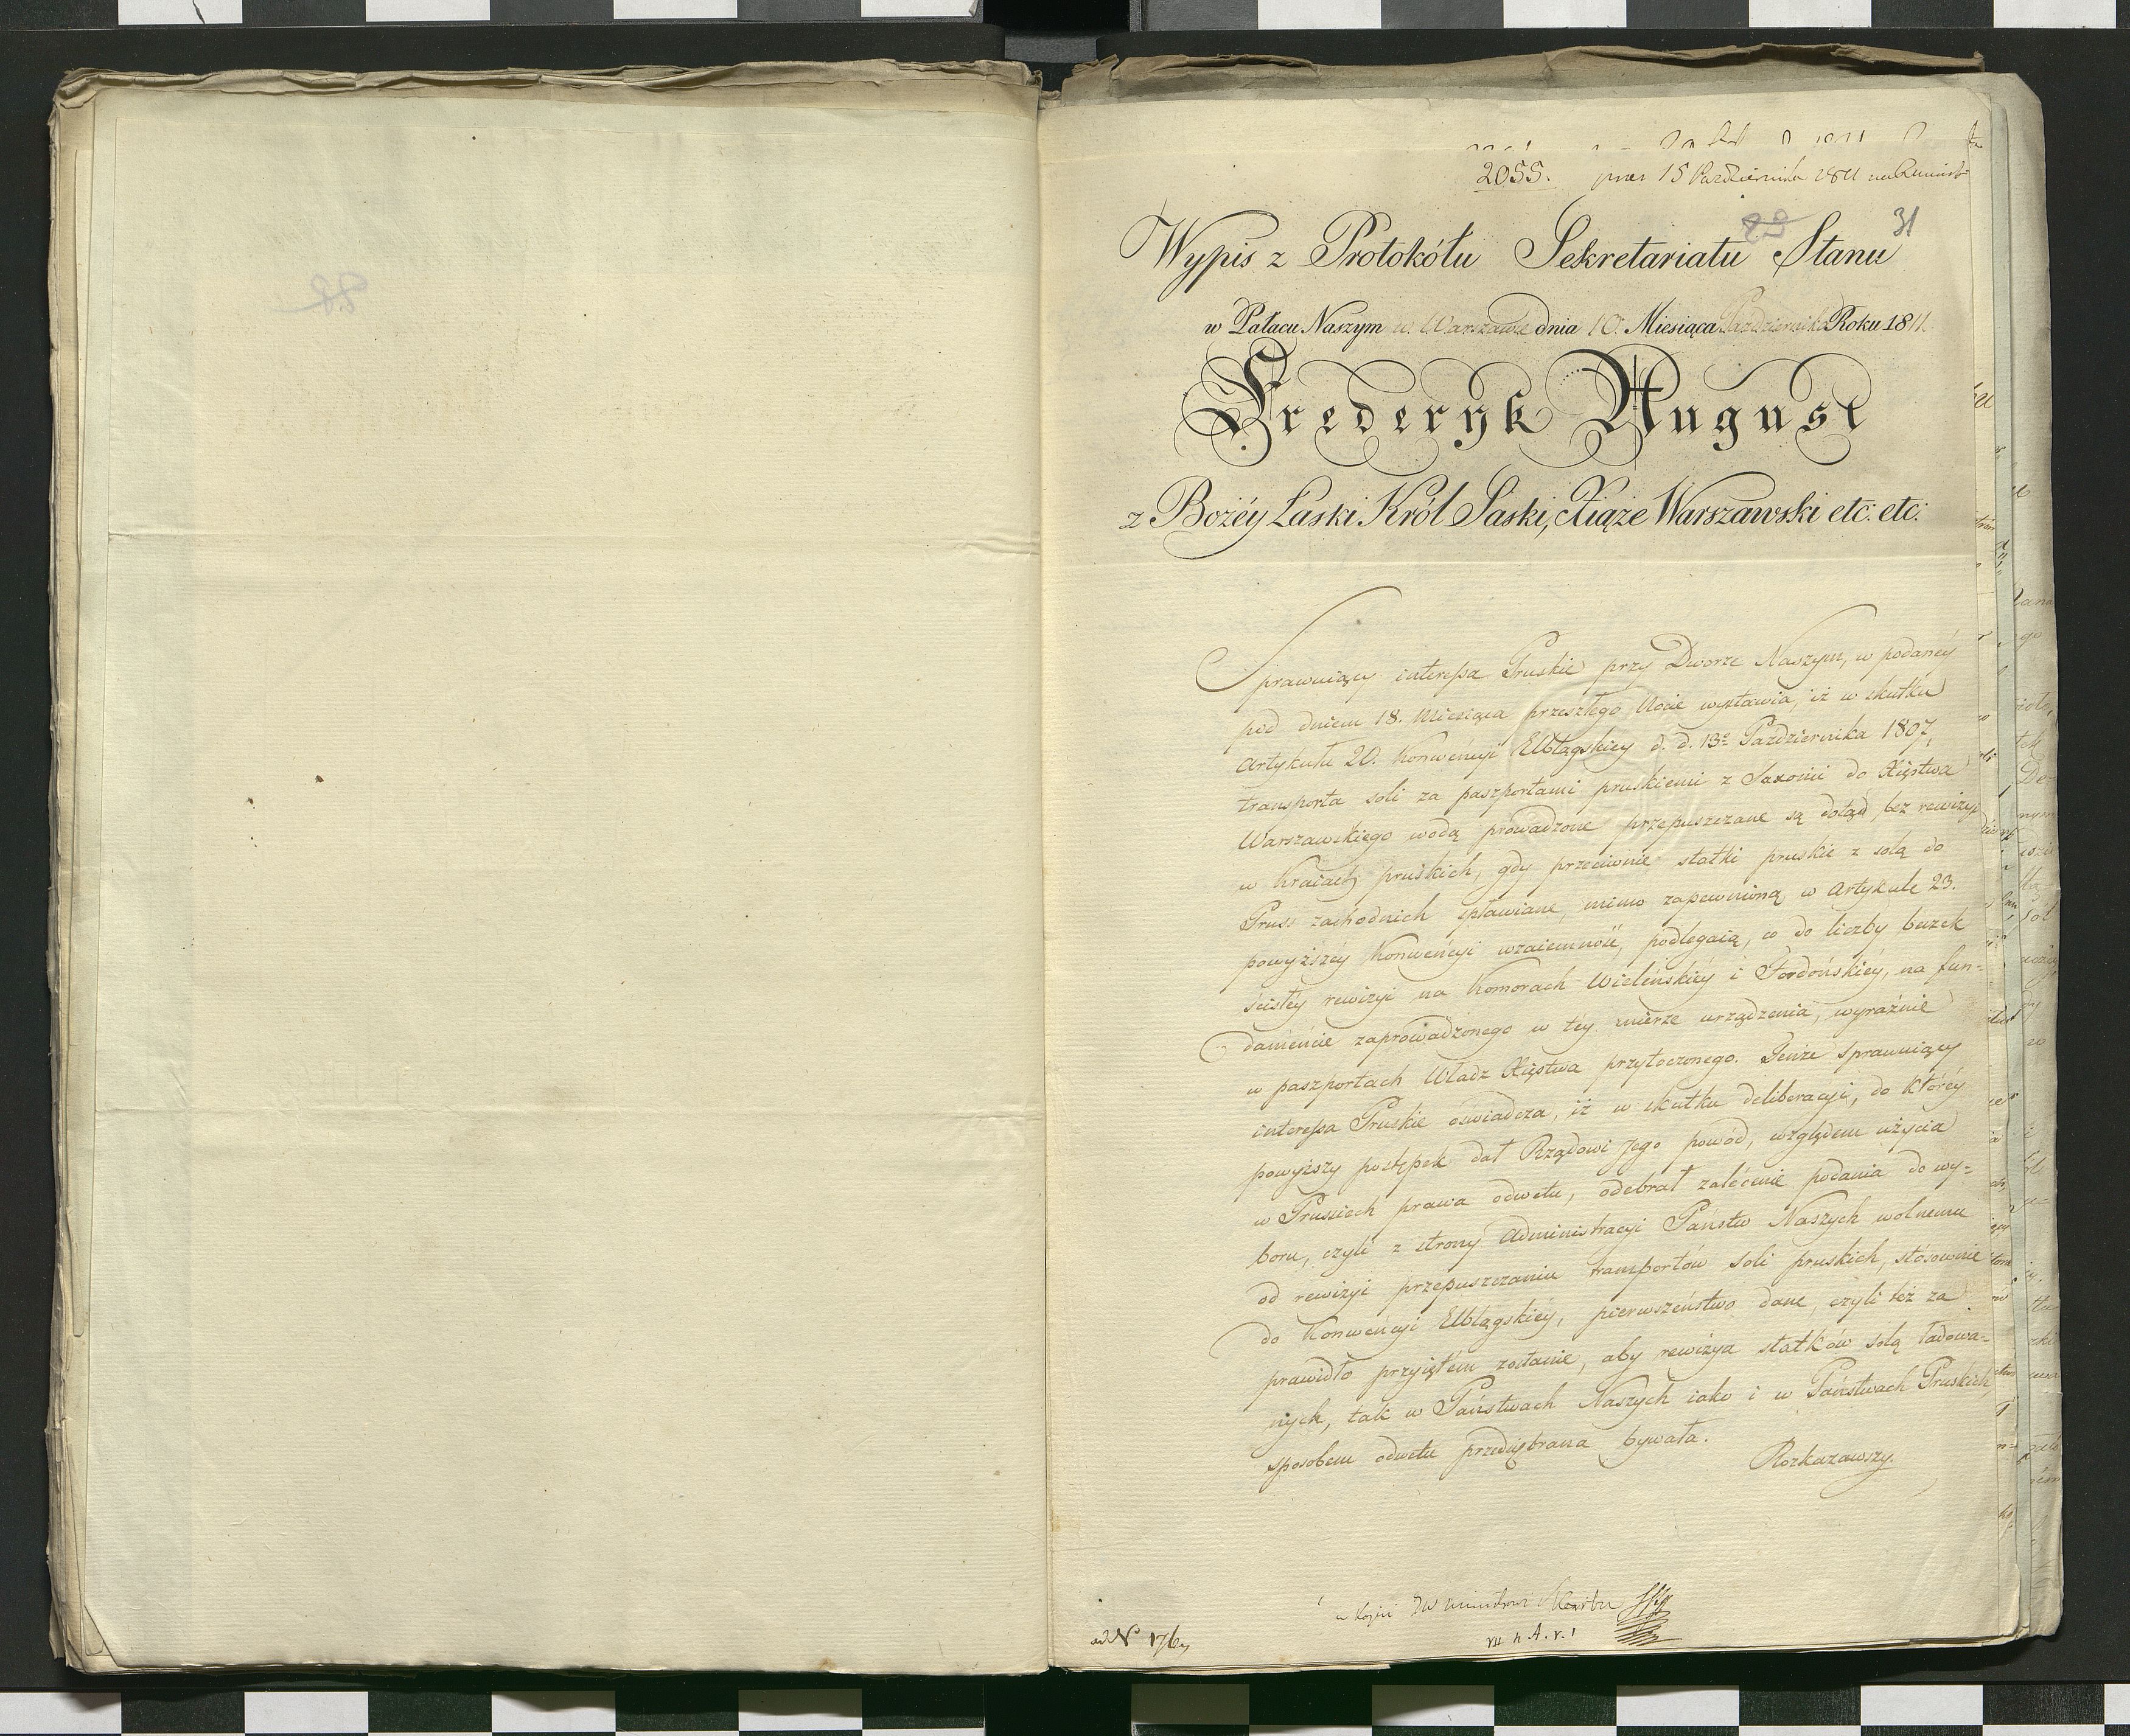 2055. 15 Października 1811
29 31
Wypis z Protokółu Sekretariatu Stanu
w Pałacu Naszym w Warszawie dnia 10. Miesiąca Października Roku 1811.
Frederyk August
z Bożéy Łaski Król Saski, Xiąże Warszawski etc: etc:
Sprawuiący interessa Pruskie przy Dworze Naszym, w podanéy
pod dniem 18. Miesiąca przeszłego Nocie wystawia, iż w skutku
Artykułu 20. Konwencyi Elblągskiey d. d. 13º Października 1807,
transporta soli za paszportami pruskiemi z Saxonii do Xięstwa
Warszawskiego wodą prowadzone przepuszczane są dotąd bez rewizyi
w kraiach pruskich, gdy przeciwnie statki pruskie z solą do
Pruss zachodnich spławiane, mimo zapewnioną w Artykule 23.
powyższéy Konwencyi wzaiemność, podlegaią, co do liczby beczek
ścisłéy rewizyi na Komorach Wieleńskiéy i Fordońskiéy, na fun-
damencie zaprowadzonego w téy mierze urządzenia, wyraźnie
w paszportach Władz Xięstwa przytoczonego. Tenże Sprawuiący
interessa Pruskie oświadcza, iż w skutku deliberacyi, do któréy
powyższy postępek dał Rządowi Jego powód, względem użycia
w Prussiech prawa odwetu, odebrał zalecenie podania do wy-
boru, czyli z strony Administracyi Państw Naszych wolnemu
od rewizyi przepuszczaniu transportów soli pruskich, stósownie
do Konwencyi Elblągskiéy, pierwszeństwo dane, czyli też za
prawidło przyiętem zostanie, aby rewizya statków solą ładowa-
nych, tak w Państwach Naszych iako i w Państwach Pruskich
sposobem odwetu przedsiębrana bywała.
Rozkazawszy.
Skarbu
ad N 176